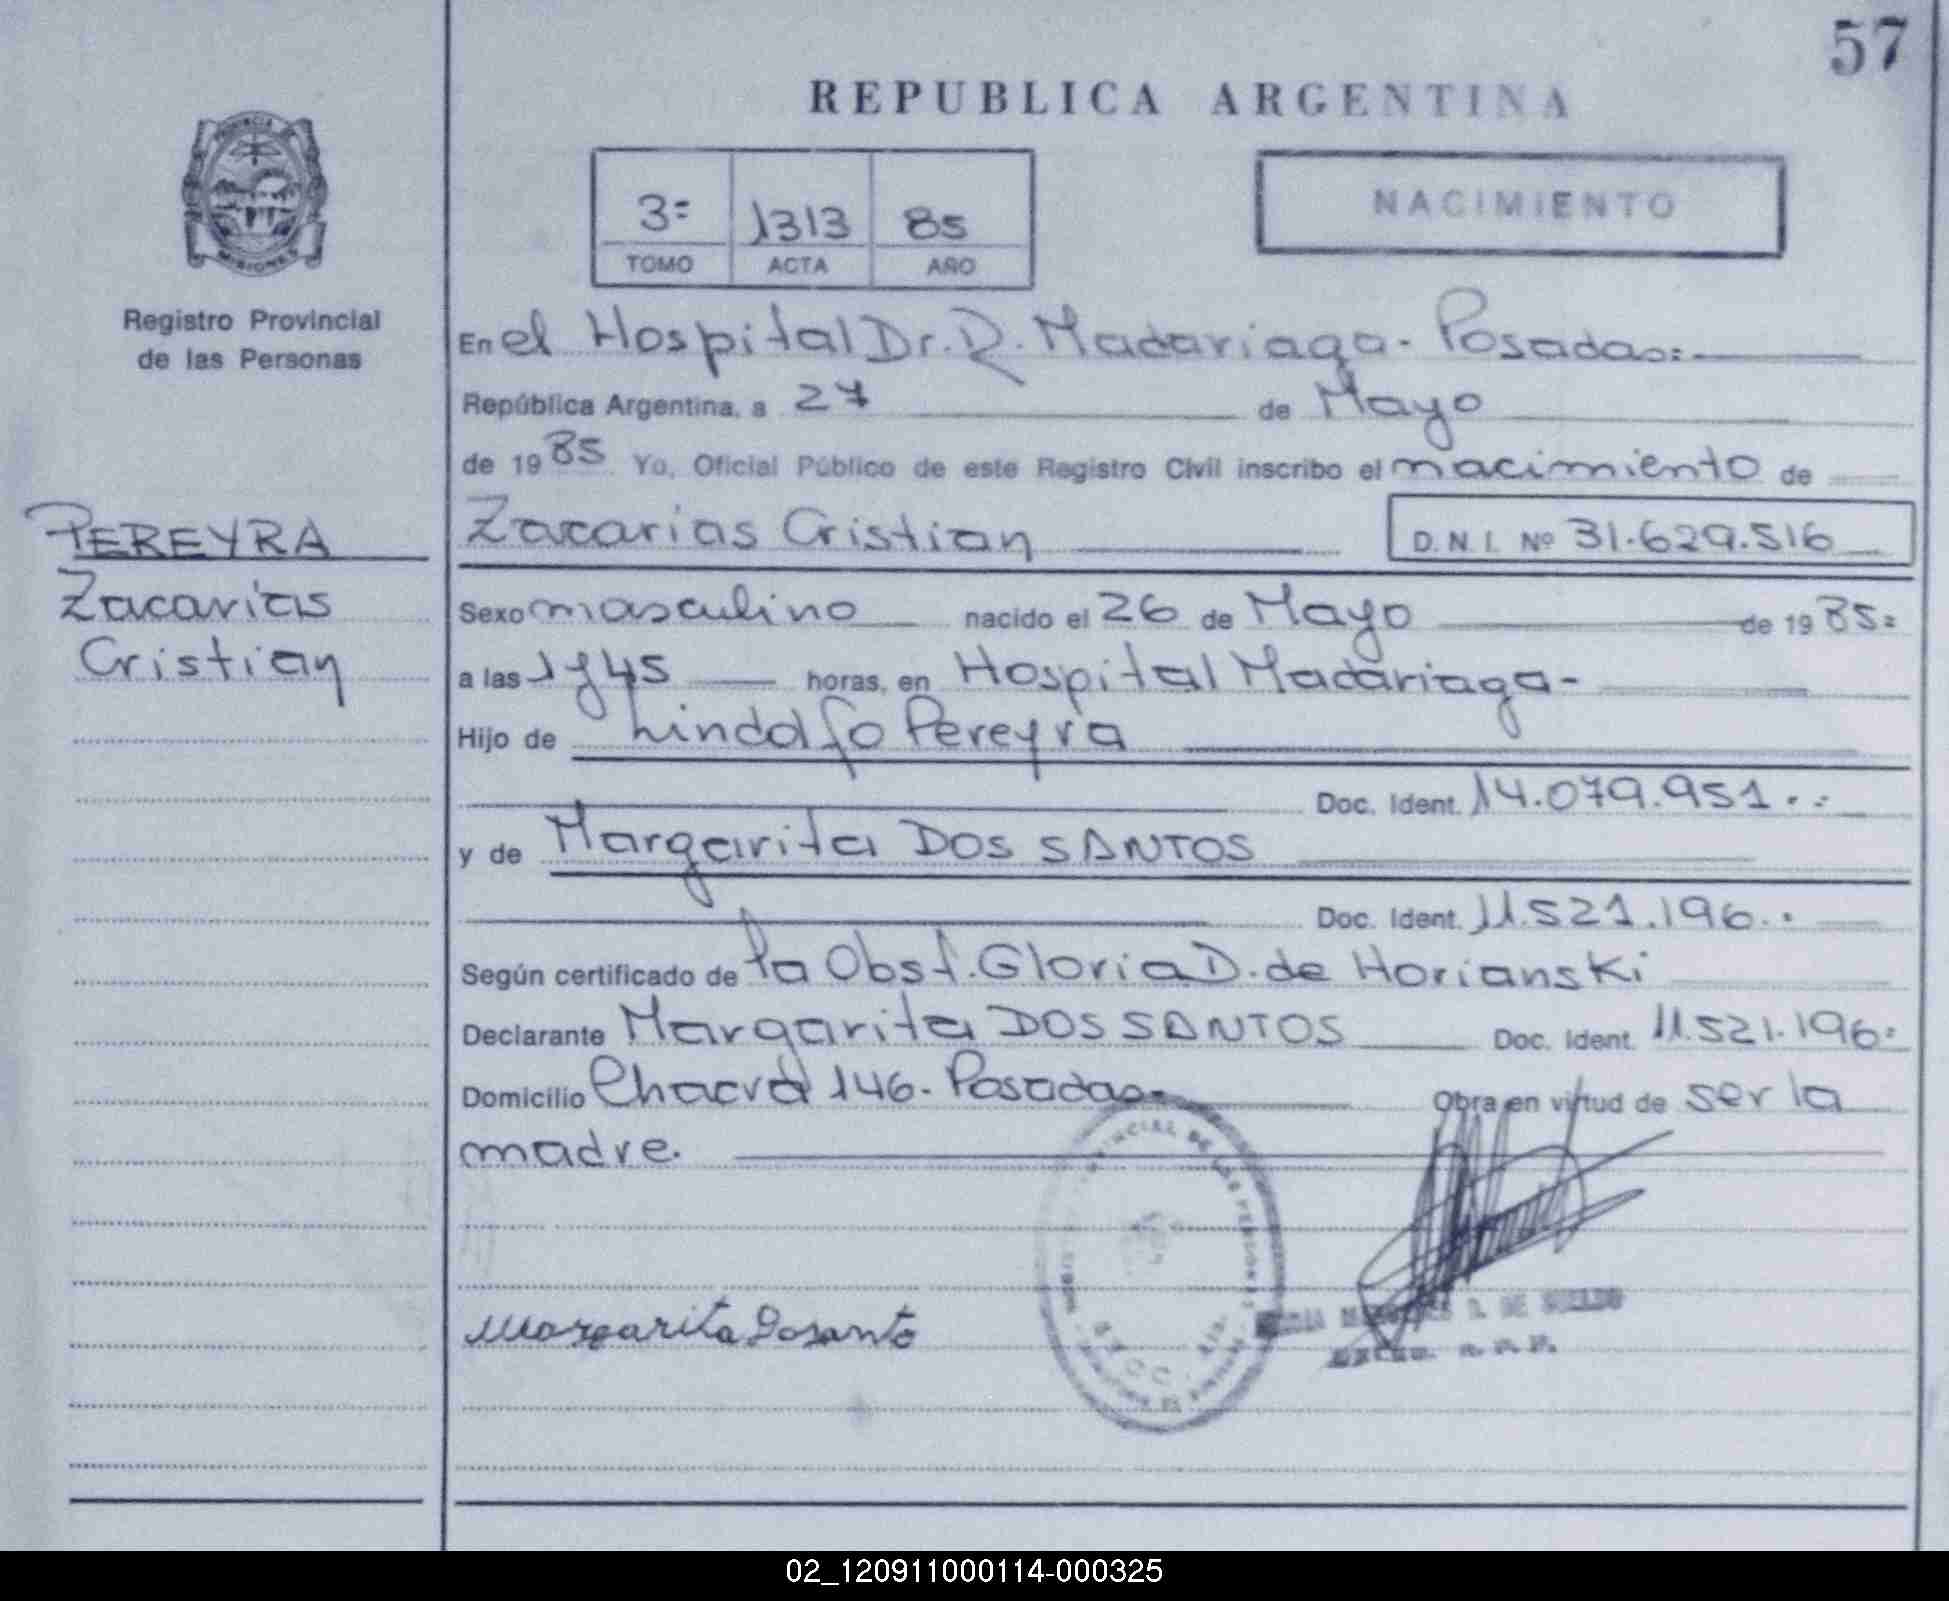 57
REPUBLICA ARGENTINA
PROVINCIA DE
MISIONES
3= 1313 85
TOMO ACTA AÑO
NACIMIENTO
Registro Provincial
de las Personas
En el Hospital Dr. R. Madariaga. Posadas:
República Argentina, a 27 de Mayo
de 1985 Yo, Oficial Público de este Registro Civil inscribo el nacimiento de
PEREYRA
Zacarias
Cristian
Zacarias Cristian D. N. I. Nº 31.629.516
Sexo masculino nacido el 26 de Mayo de 1985=
a las 1y45 horas, en Hospital Madariaga-
Hijo de Lindolfo Pereyra
Doc. Ident. 14.079.951..
y de Margarita DOS SANTOS
Doc. Ident. 11.521.196..
Según certificado de la Obst. Gloria D. de Horianski
Declarante Margarita DOS SANTOS Doc. Ident. 11.521.196.
Domicilio Chacra 146. Posadas- Obra en virtud de ser la
madre.
Margarita Dosanto
DE LAS PERSONAS
02_120911000114-000325